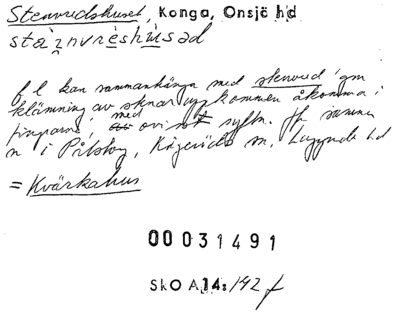 Stenvredshuset, Konga, Onsjö hd
stáìnvrèshùsəd
f l kan sammanhänga med stenvred 'gm
klämning av stenar uppkommen åkomma i
fingrarna, med ovisst syftn. Jfr samma
n i Pålstorp, Kågeröds sn, Luggude hd
= Kvärkahus
00031491
SkO A14: 142 f